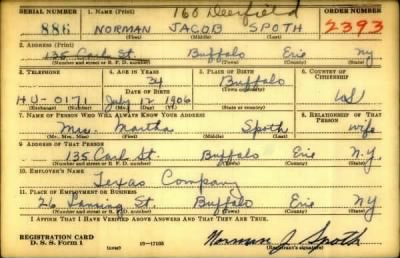 SERIAL NUMBER 1. NAME (Print) 168 Deerfield ORDER NUMBER
886 NORMAN JACOB SPOTH 2393
(First) (Middle) (Last)
2. ADDRESS (Print)
135 Carl St. Buffalo Erie NY
(Number and street or R. F. D. number) (Town) (County) (State)
3. TELEPHONE 4. AGE IN YEARS 5. PLACE OF BIRTH 6. COUNTRY OF CITIZENSHIP
34 Buffalo
DATE OF BIRTH
HU-0171 July 12 1906 NY US
(Exchange) (Number) (Mo.) (Day) (Yr.) (State or country)
7. NAME OF PERSON WHO WILL ALWAYS KNOW YOUR ADDRESS 8. RELATIONSHIP OF THAT PERSON
Mrs. Martha Spoth wife
(Mr., Mrs., Miss) (First) (Middle) (Last)
9. ADDRESS OF THAT PERSON
135 Carl St. Buffalo Erie N.Y.
(Number and street or R. F. D. number) (Town) (County) (State)
10. EMPLOYER'S NAME
Texas Company
11. PLACE OF EMPLOYMENT OR BUSINESS
26 St. Buffalo Erie NY
(Number and street or R. F. D. number) (Town) (County) (State)
I AFFIRM THAT I HAVE VERIFIED ABOVE ANSWERS AND THAT THEY ARE TRUE.
REGISTRATION CARD
D. S. S. Form 1 (over) 16-17105 Norman J. Spoth
(Registrant's signature)